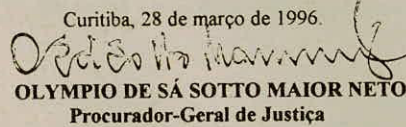 Curitiba, 28 de março de 1996.
OLYMPIO DE SÁ SOTTO MAIOR NETO
Procurador-Geral de Justiça